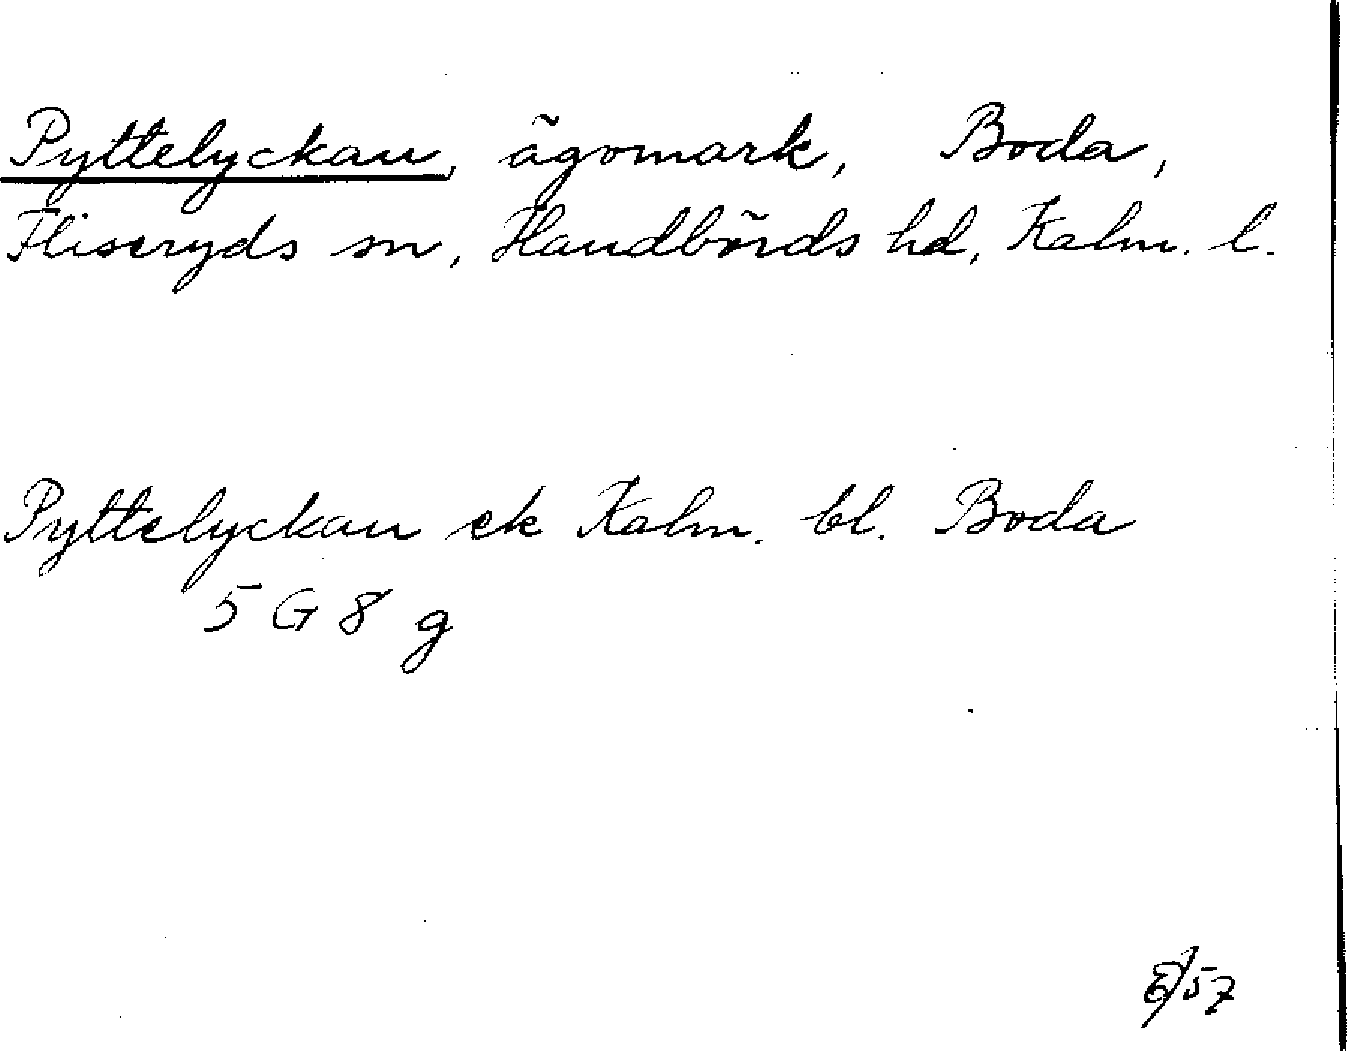 Pyttelyckan, ägomark, Boda,
Fliseryds sn, Handbörds hd, Kalm. l.
Pyttelyckan ek Kalm. bl. Boda
5 G 8 g
6/57